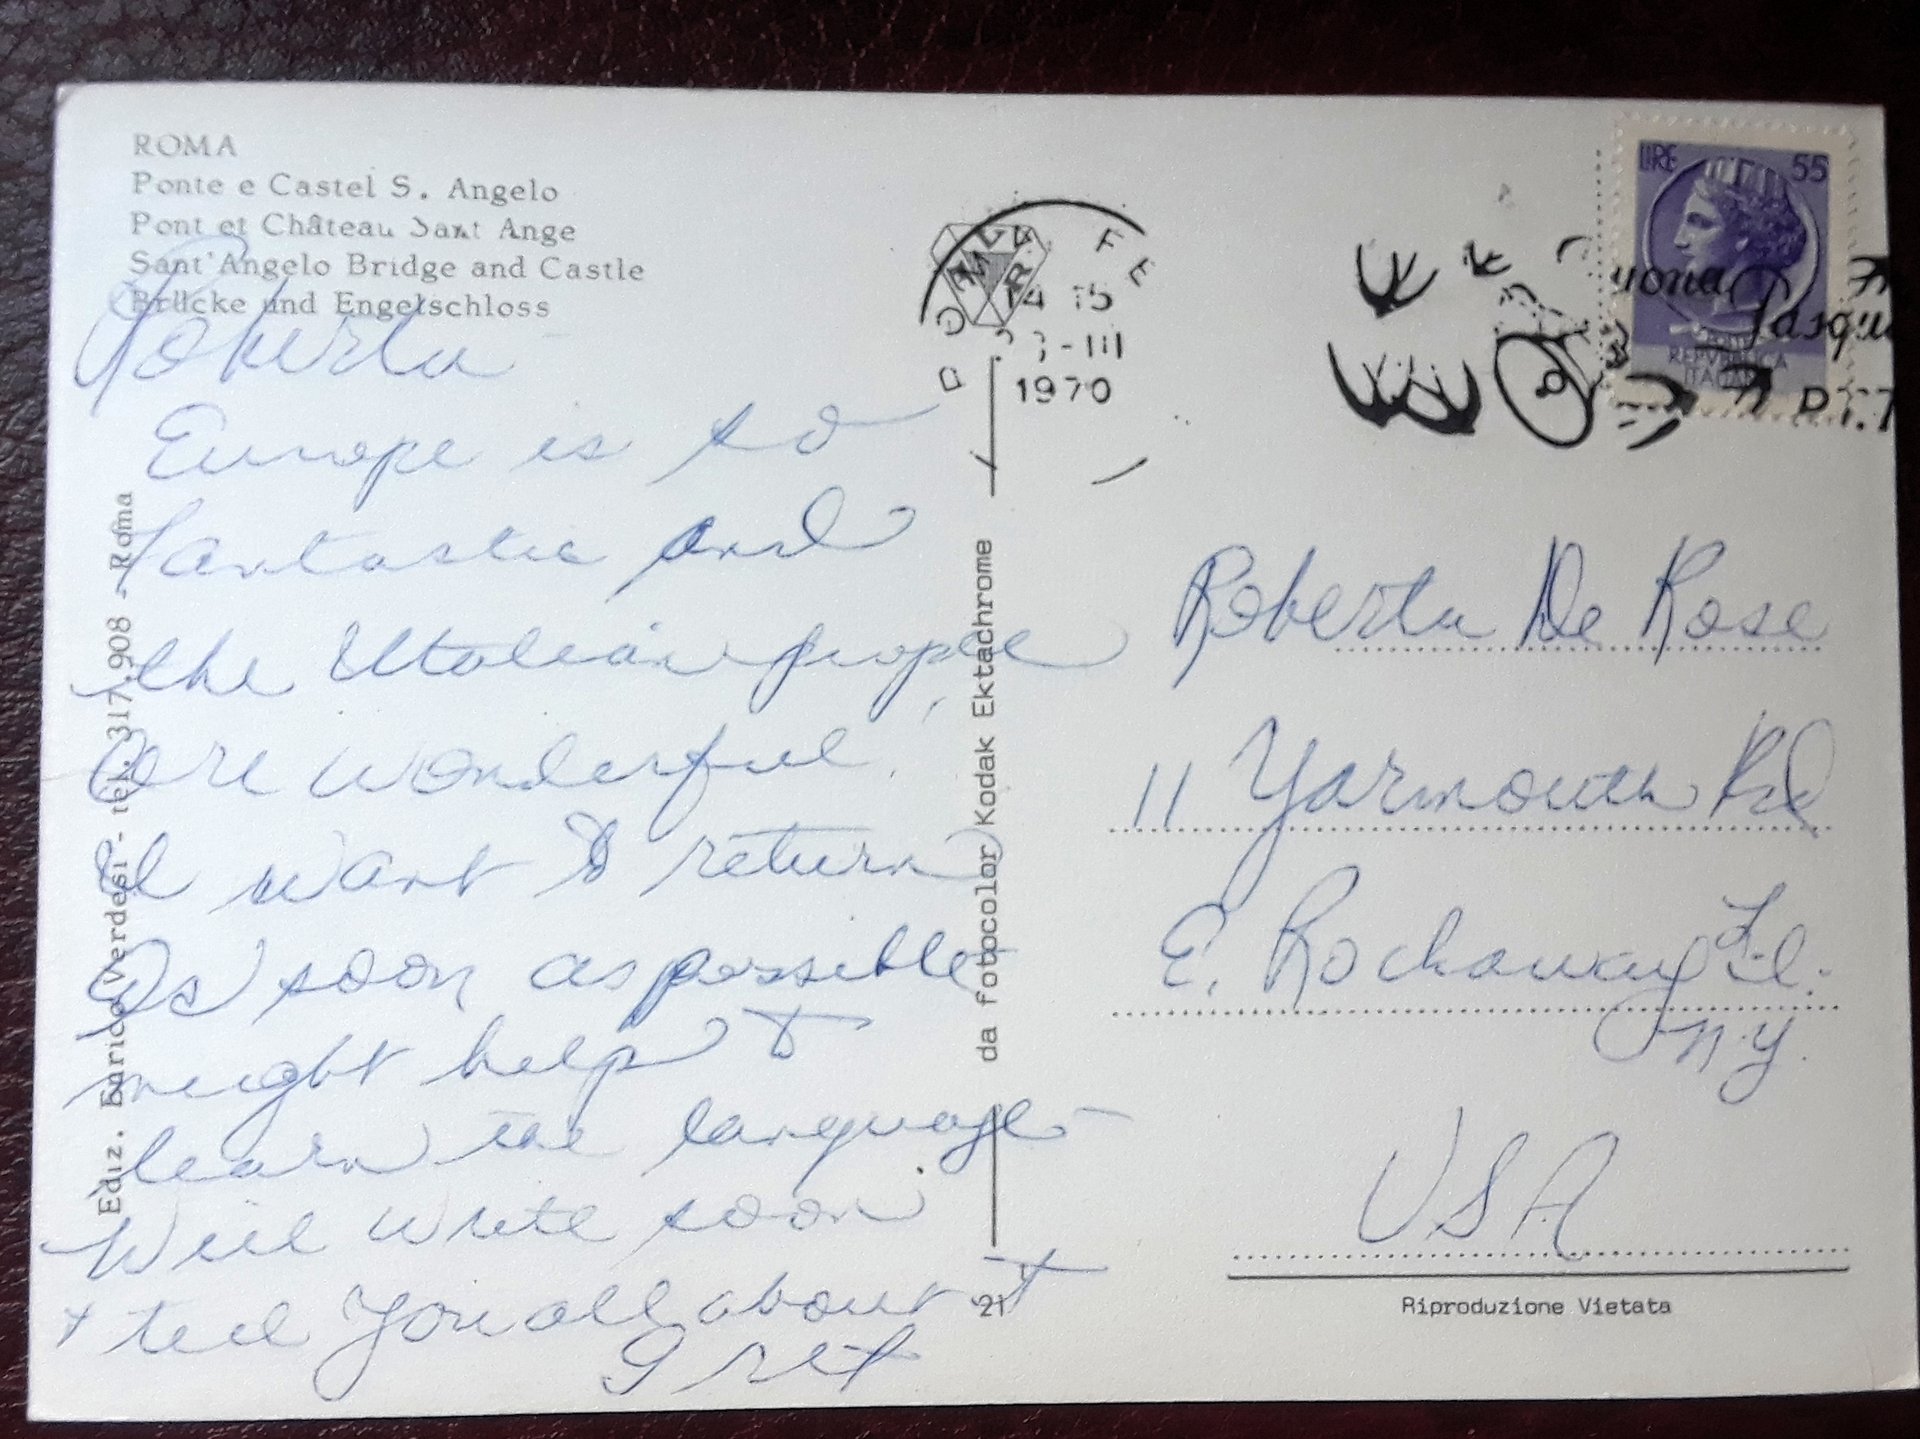 ROMA
Ponte e Castel S. Angelo
Pont et Château Sant Ange
Sant'Angelo Bridge and Castle
Brücke und Engelschloss
Roberta -
Europe is so
fantastic and
the Italian people
are wonderful.
I want to return
as soon as possible
might help to
learn the language -
Will write soon
+ tell you all about it
Gret
Ediz. Enrico Verdesi - tel. 317.908 - Roma
da fotocolor Kodak Ektachrome
21
ROMA FERR.
14 15
-III
1970
LIRE 55
REPVBBLICA
ITALIANA
Buona Pasqua
P.T.
Roberta De Rose
11 Yarmouth Rd
E. Rockaway L.I.
N.Y.
USA
Riproduzione Vietata